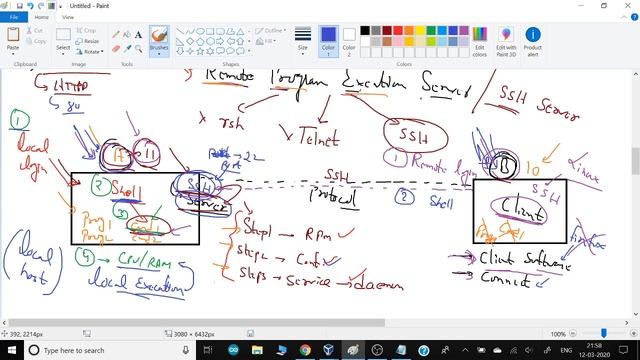 Untitled - Paint
File Home View
Paste
Clipboard
Select
Crop
Resize
Rotate
Image
Brushes
Tools
Shapes
Outline
Fill
Size
Color 1
Color 2
Edit colors
Colors
Edit with Paint 3D
Product alert
HTTPD
80
Remote Program Execution Service
SSH Server
rsh
Telnet
SSH
1 Remote login
2 Shell
1
local login
A
11
22
SSH
Server
2 Shell
3
Prog1
cmd1
cmd2
4 → CPU/RAM
local Execution
(local host)
SSH
Protocol
Step1 → RPM
Step2 → Conf
Step3 → Service → daemon
B
10
Linux
SSH
Client
firefox
Client Software
Connect
392, 2214px
3080 × 6432px
100%
Type here to search
ENG
21:58
12-03-2020